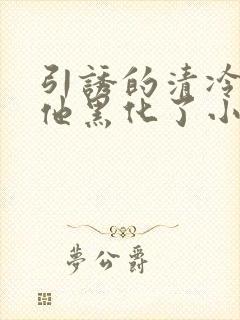 引誘的清冷
他黑化了小
夢公爵